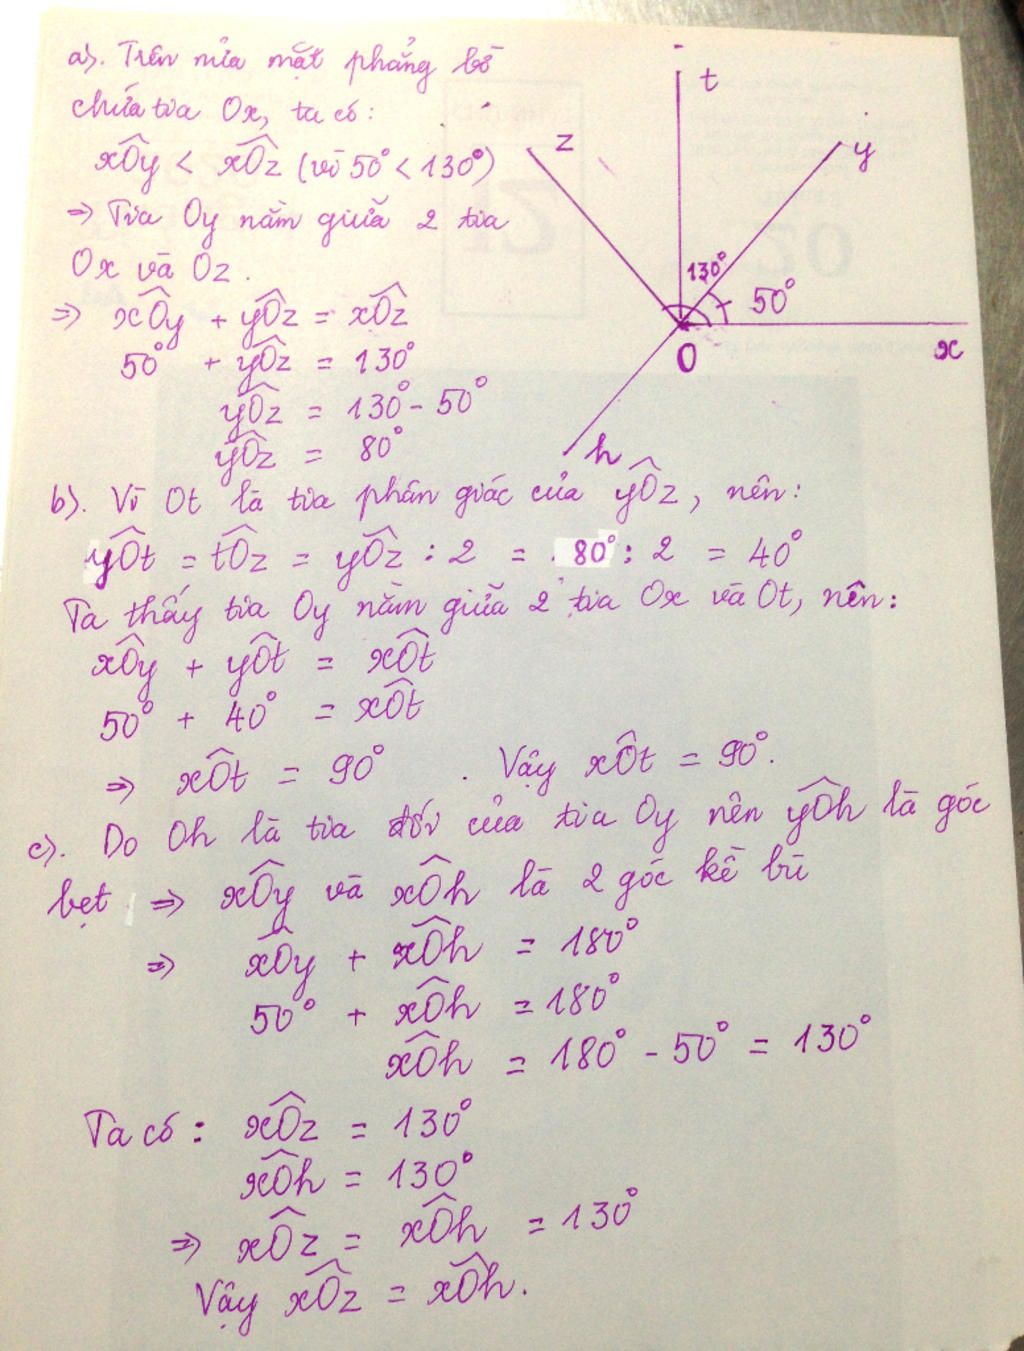 a). Trên nửa mặt phẳng bờ
chứa tia Ox, ta có:
xÔy < xÔz (vì 50° < 130°)
=> Tia Oy nằm giữa 2 tia
Ox và Oz.
=> xÔy + yÔz = xÔz
50° + yÔz = 130°
yÔz = 130° - 50°
yÔz = 80°
z
t
y
130°
50°
O
x
h
b). Vì Ot là tia phân giác của yÔz, nên:
yÔt = tÔz = yÔz : 2 = 80° : 2 = 40°
Ta thấy tia Oy nằm giữa 2 tia Ox và Ot, nên:
xÔy + yÔt = xÔt
50° + 40° = xÔt
=> xÔt = 90° . Vậy xÔt = 90°.
c). Do Oh là tia đối của tia Oy nên yÔh là góc
bẹt => xÔy và xÔh là 2 góc kề bù
=> xÔy + xÔh = 180°
50° + xÔh = 180°
xÔh = 180° - 50° = 130°
Ta có: xÔz = 130°
xÔh = 130°
=> xÔz = xÔh = 130°
Vậy xÔz = xÔh.